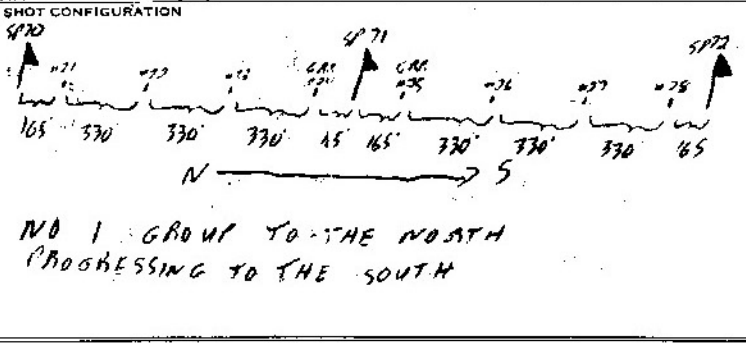 SHOT CONFIGURATION
SP70 SP71 SP72
#21 #22 #23 GRP. GRP. #26 #27 #28
#24 #25
165' 330' 330' 330' 165' 330' 330' 330' 165
N S
NO 1 GROUP TO THE NORTH
PROGRESSING TO THE SOUTH